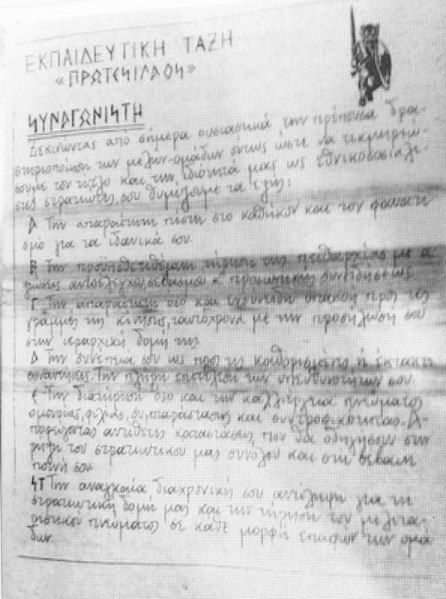 ΕΚΠΑΙΔΕΥΤΙΚΗ ΤΑΞΗ
«ΠΡΩΤΕΣΙΛΑΟΣ»
ΣΥΝΑΓΩΝΙΣΤΗ
Ξεκινώντας από σήμερα ουσιαστικά την πρέπουσα δρα-
στηριοποίηση των μελών-ομάδων ούτως ώστε να τεκμηριώ-
σουμε τον τίτλο και την ιδιότητά μας ως εθνικοσοσιαλι-
στές στρατιώτες σου θυμίζουμε τα εξής:
Α Την απαραίτητη πίστη στο καθήκον και τον φανατι
σμό για τα ιδανικά σου.
Β Την προϋποθετιθέμενη τήρηση της πειθαρχίας με
αυτοέλεγχο σεβασμού κ' προσωπικής συνειδήσεως
Γ Την απαραίτητη όσο και υπακοή προς τις
γραμμές της κίνησης, ταυτόχρονα με την προσήλωσή σου
στην ιεραρχική δομή της.
Δ Την συνέπειά σου ως προς τις καθορισμένες ή έκτακτες
συναντήσεις. Την πλήρη επιτέλεση των υπευθυνοτήτων σου
Ε Την διατήρηση όσο και την καλλιέργεια πνεύματος
ομόνοιας, φιλίας, συμπαράστασης και συντροφικότητας. Α-
ποφεύγοντας αντίθετες καταστάσεις που θα οδηγήσουν στην
ρήξη του στρατιωτικού μας συνόλου και στη βέβαιη
ποινή σου
ΣΤ Την αναγκαία διαχρονική σου αντίληψη για τη
στρατιωτική δομή μας και την τήρηση του μιλιτα-
ριστικού πνεύματος σε κάθε μορφή επαφών των ομά
δων.